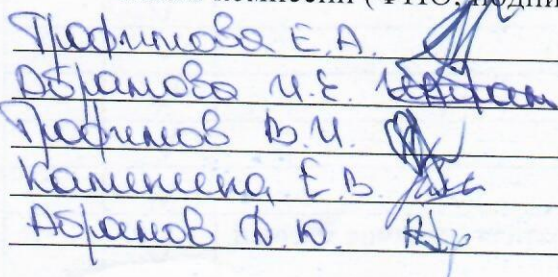 комиссии (ФИО, подпи
Трофимова Е.А.
Абрамова И.Е.
Трофимов В.И.
Калинкина Е.В.
Абрамов Д.Ю.